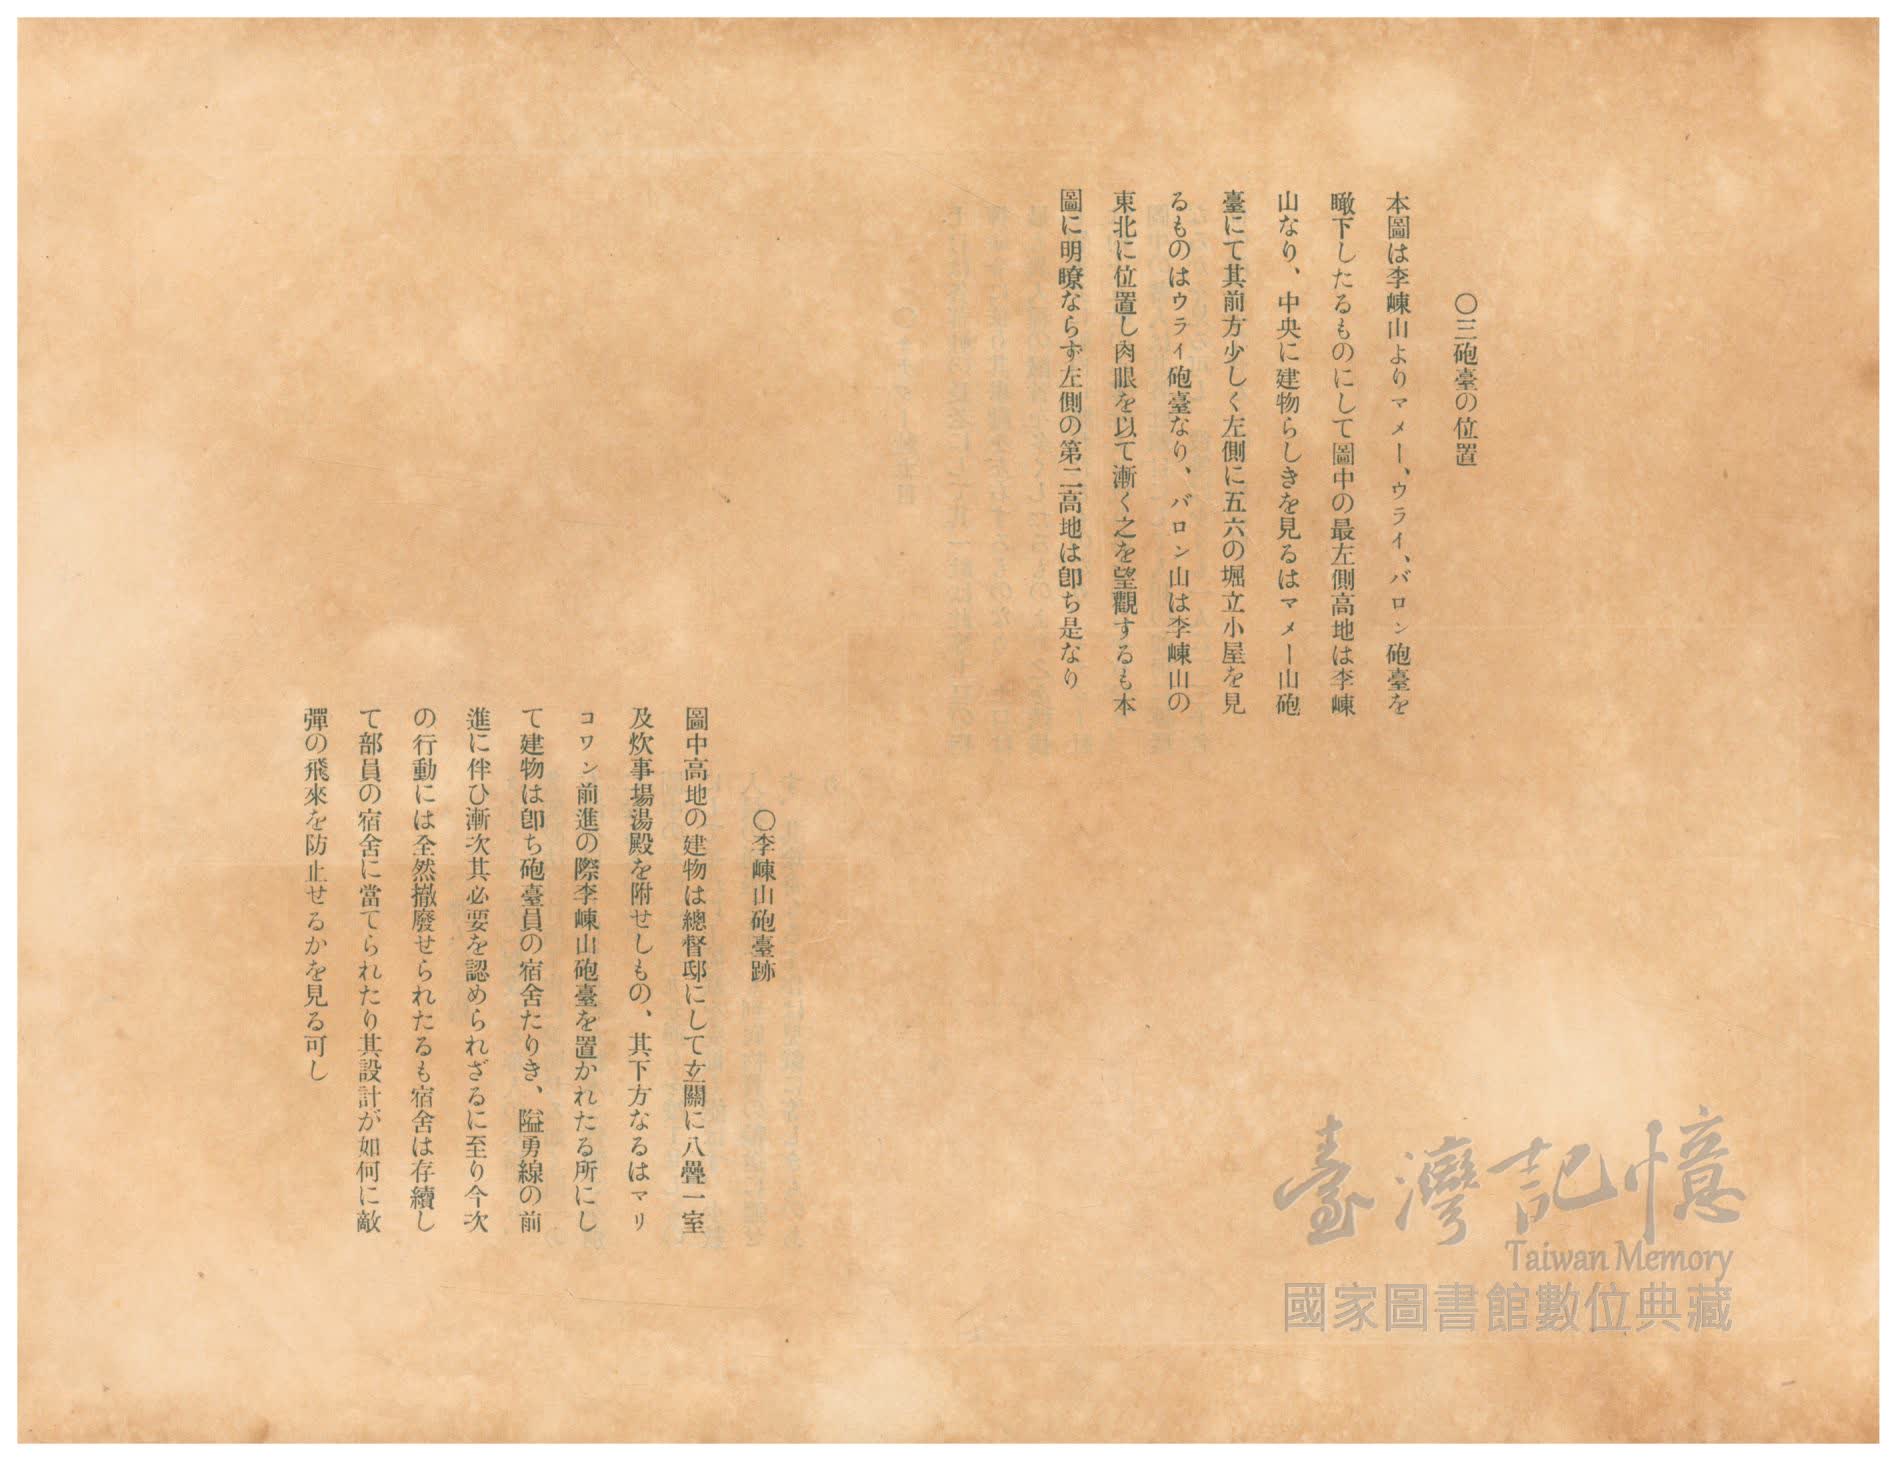 〇三砲臺の位置
本圖は李崠山よりマメー、ウライ、バロン砲臺を
瞰下したるものにして圖中の最左側高地は李崠
山なり、中央に建物らしきを見るはマメー山砲
臺にて其前方少しく左側に五六の堀立小屋を見
るものはウライ砲臺なり、バロン山は李崠山の
東北に位置し肉眼を以て漸く之を望觀するも本
圖に明瞭ならず左側の第二高地は卽ち是なり
〇李崠山砲臺跡
圖中高地の建物は總督邸にして玄關に八疊一室
及炊事場湯殿を附せしもの、其下方なるはマリ
コワン前進の際李崠山砲臺を置かれたる所にし
て建物は卽ち砲臺員の宿舍たりき、隘勇線の前
進に伴ひ漸次其必要を認められざるに至り今次
の行動には全然撤廢せられたるも宿舍は存續し
て部員の宿舍に當てられたり其設計が如何に敵
彈の飛來を防止せるかを見る可し
臺灣記憶
Taiwan Memory
國家圖書館數位典藏